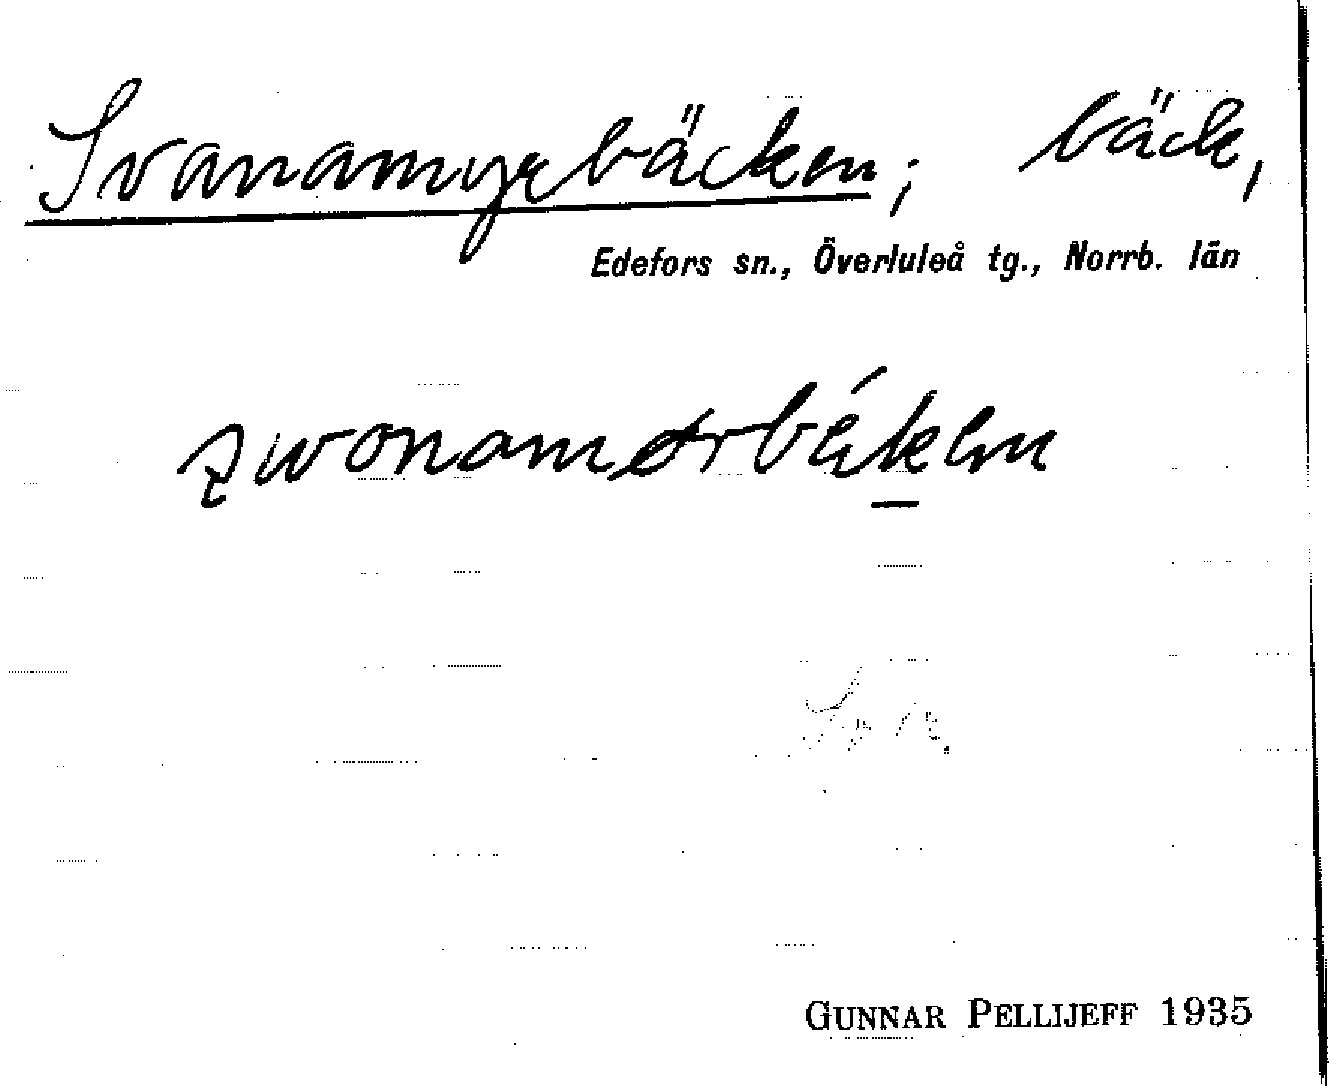 Svanamyrbäcken; bäck,
Edefors sn., Överluleå tg., Norrb. län
GUNNAR PELLIJEFF 1935